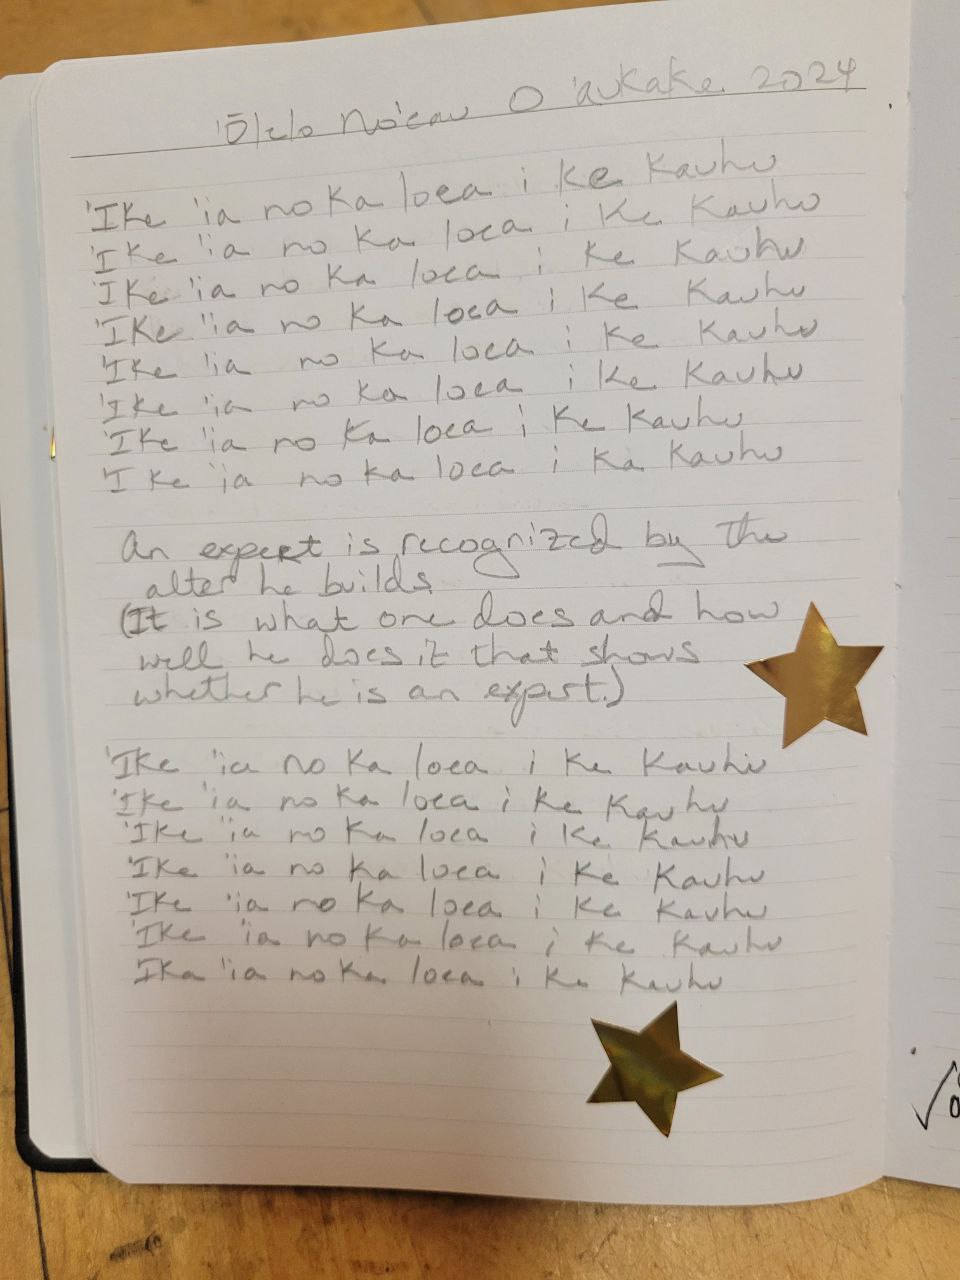 'Ōlelo No'eau O 'aukake 2024
'Ike 'ia no ka loea i ke kauhu
'Ike 'ia no ka loea i ke kauhu
'Ike 'ia no ka loea i ke kauhu
'Ike 'ia no ka loea i ke kauhu
'Ike 'ia no ka loea i ke kauhu
'Ike 'ia no ka loea i ke kauhu
'Ike 'ia no ka loea i ke kauhu
'Ike 'ia no ka loea i ka kauhu
An expert is recognized by the
alter he builds
(It is what one does and how
well he does it that shows
whether he is an expert.)
'Ike 'ia no ka loea i ke kauhu
'Ike 'ia no ka loea i ke kauhu
'Ike 'ia no ka loea i ke kauhu
'Ike 'ia no ka loea i ke kauhu
'Ike 'ia no ka loea i ke kauhu
'Ike 'ia no ka loea i ke kauhu
'Ika 'ia no ka loea i ke kauhu